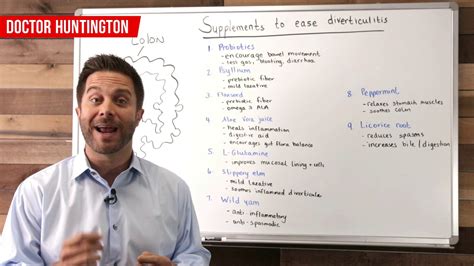 DOCTOR HUNTINGTON
Supplements to ease diverticulitis
COLON
1 Probiotics
- encourage bowel movement
- test gas, bloating, diarrhea
2 Psyllium
- prebiotic fiber
- mild laxative
3 Flaxseed
- prebiotic fiber
- omega 3 ALA
4 Aloe Vera juice
- heals inflammation
- digestive aid
- encourages gut flora balance
5 L-Glutamine
- improves mucosal lining + cells
6 Slippery elm
- mild laxative
- soothes inflamed diverticula
7. Wild yam
- anti-inflammatory
- anti-spasmodic
8 Peppermint
- relaxes stomach muscles
- soothes colon
9 Licorice root
- reduces spasms
- increases bile / digestion